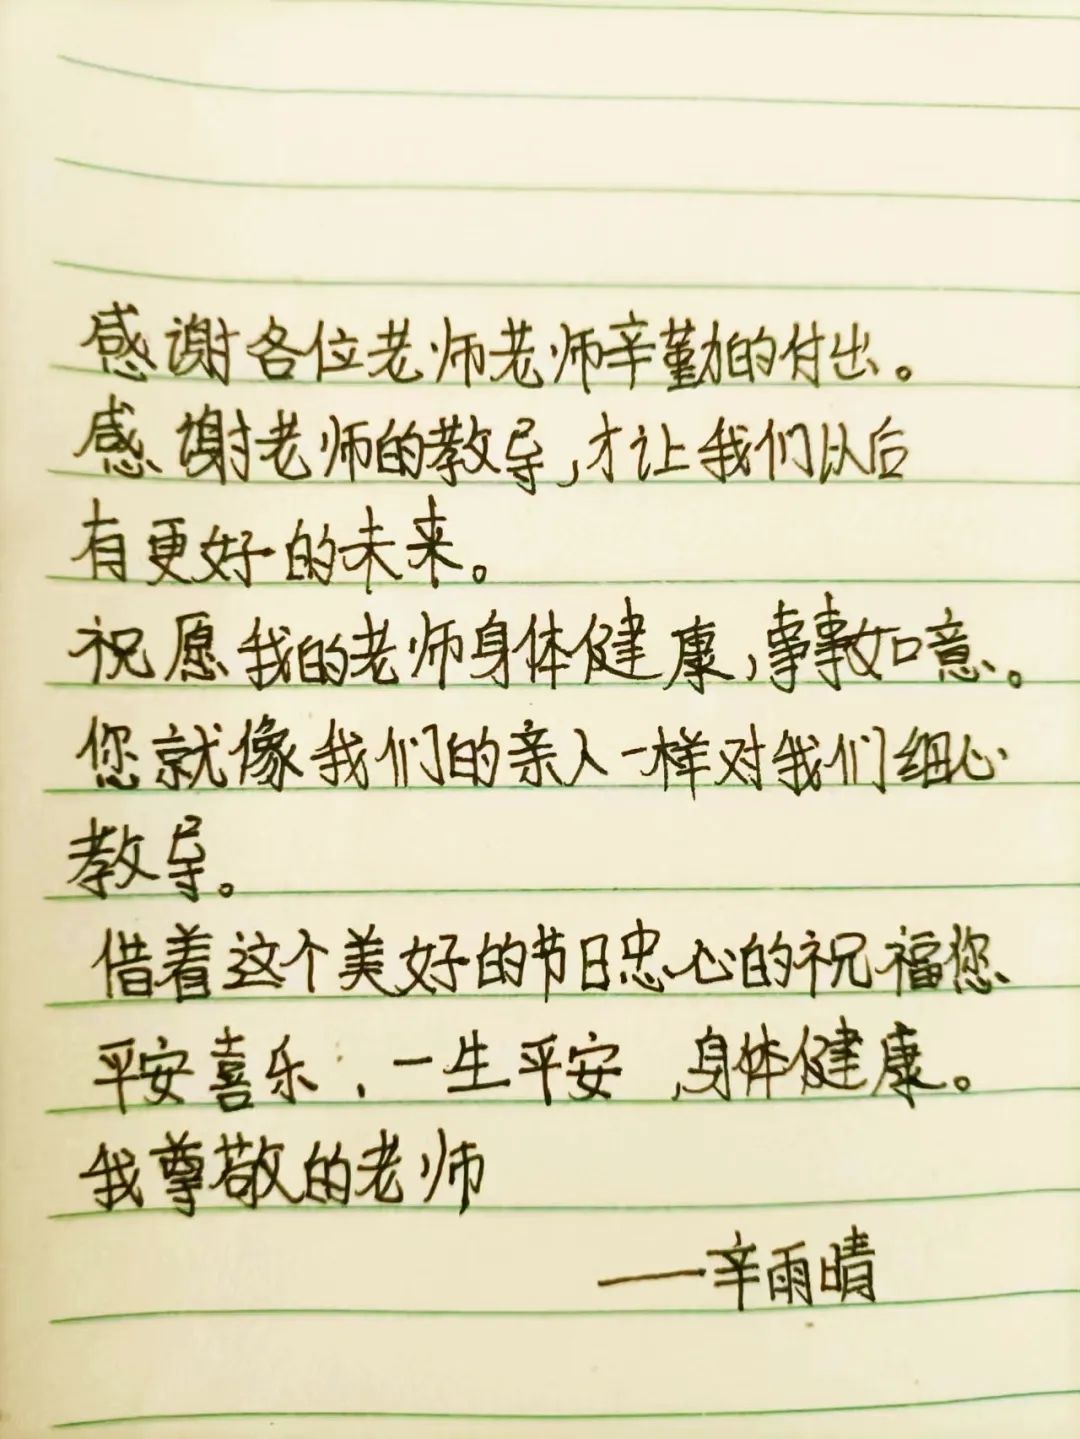 感谢各位老师老师辛勤的付出。
感谢老师的教导,才让我们以后
有更好的未来。
祝愿我的老师身体健康,事事如意。
您就像我们的亲人一样对我们细心
教导。
借着这个美好的节日忠心的祝福您
平安喜乐,一生平安,身体健康。
我尊敬的老师
——辛雨晴